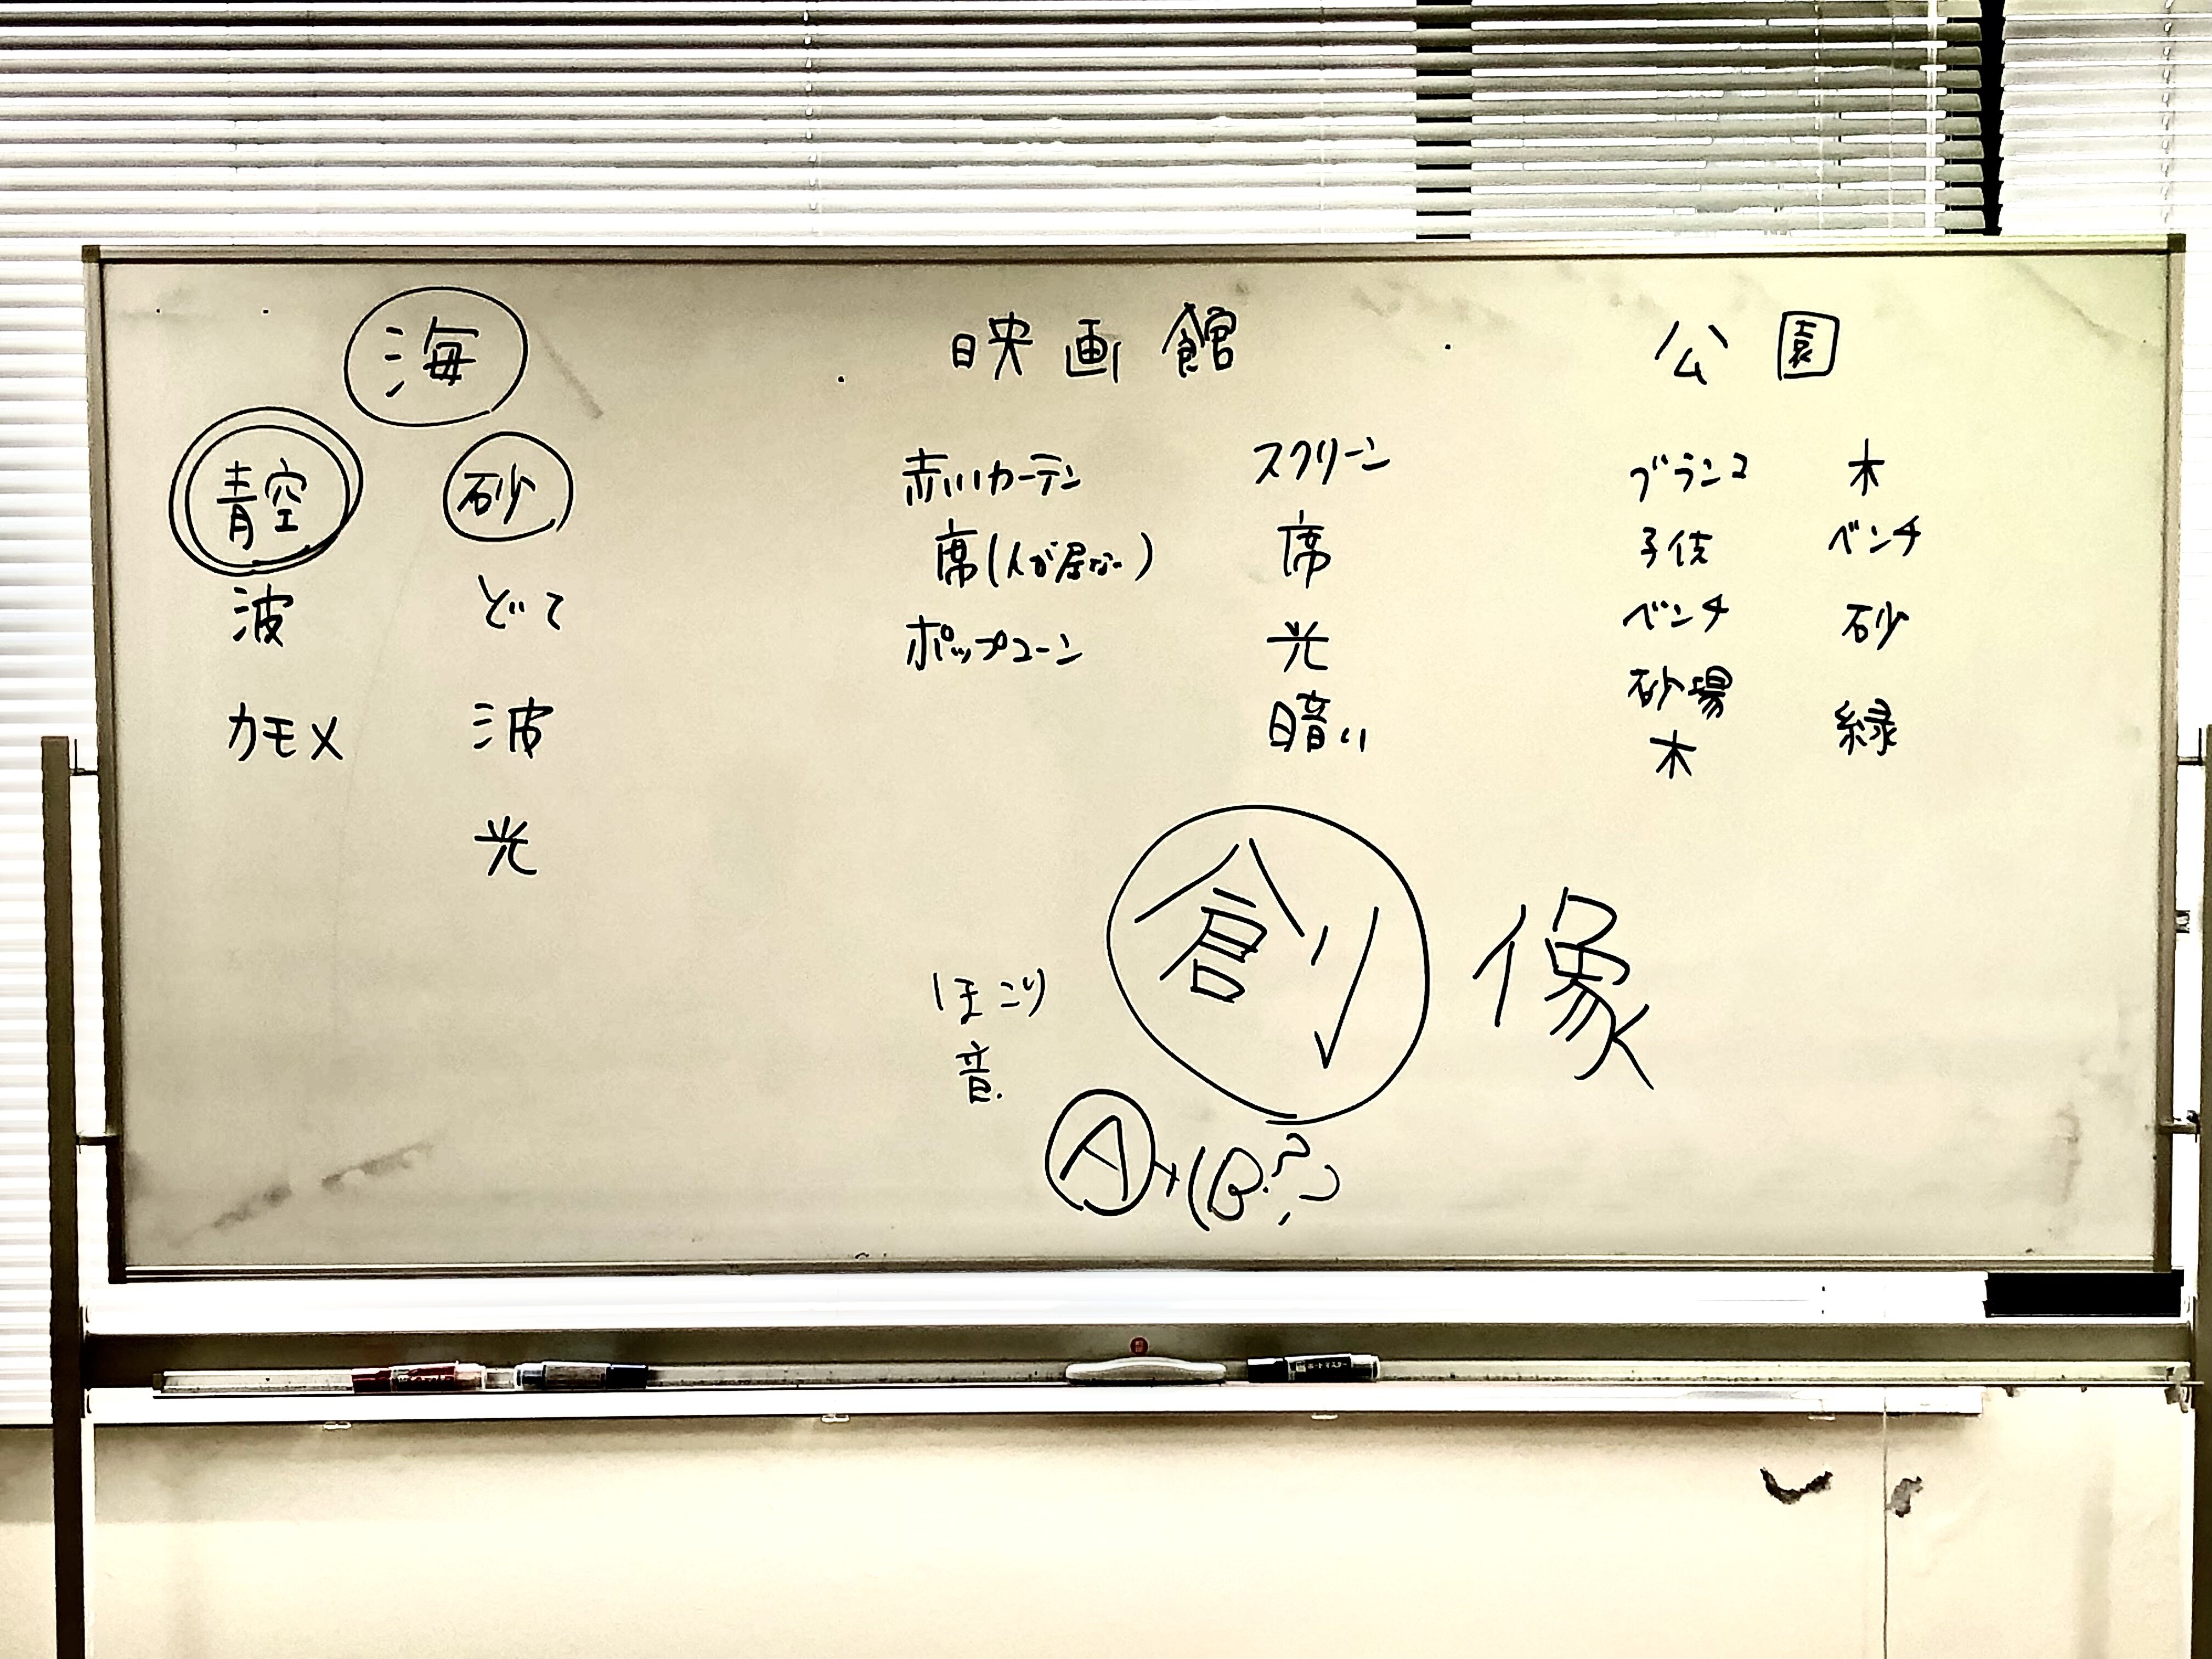 海
青空
波
カモメ
砂
どて
波
光
映画館
赤いカーテン
席(人が居ない)
ポップコーン
スクリーン
席
光
暗い
公園
ブランコ
子供
ベンチ
砂場
木
木
ベンチ
砂
緑
創像
ほこり
音
A+(B?)
ボードマスター